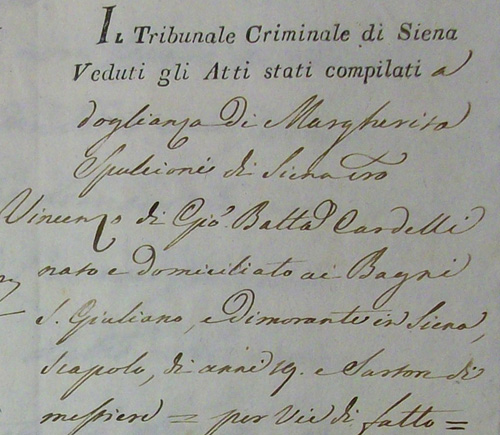 IL Tribunale Criminale di Siena
Veduti gli Atti stati compilati a
doglianza di Margherita
di Siena Cro
Vincenzo di Gio. Batta Cardelli
nato e domiciliato ai Bagni
S. Giuliano, e dimorante in Siena,
scapolo, di anni 19. e Sartor di
mestiere = per Vie di fatto =